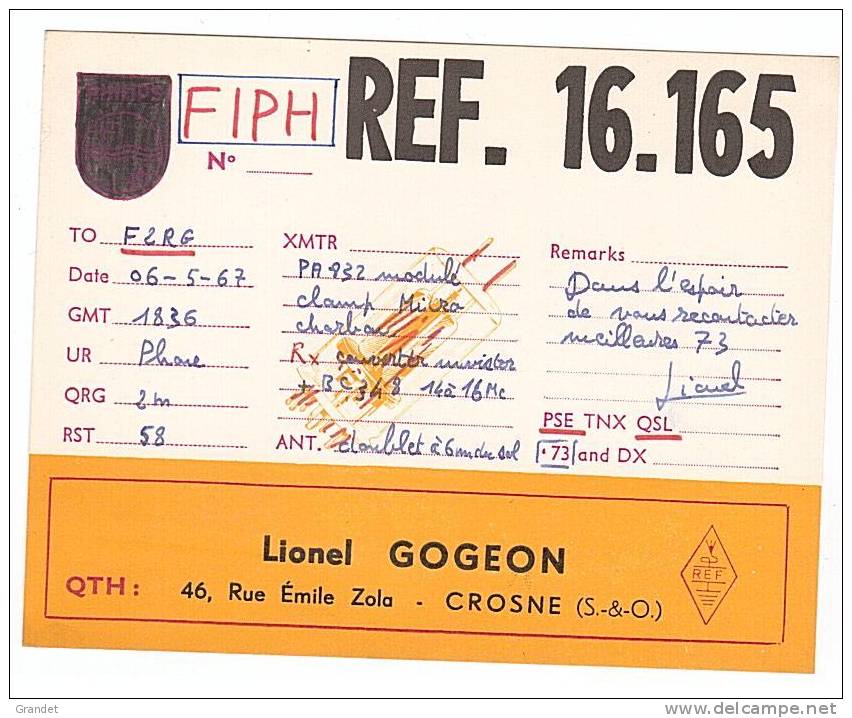 F1PH REF. 16.165
N°
TO F2RG
Date 06-5-67
GMT 1836
UR Phone
QRG 2m
RST 58
XMTR
PA 832 modulé
clamp Micro
charbon
Rx converter nuvistor
+ BC 348 14 à 16 Mc
ANT. doublet à 6m du sol
Remarks
Dans l'espoir
de vous recontacter
meilleures 73
Lionel
PSE TNX QSL
73 and DX
Lionel GOGEON
QTH: 46, Rue Émile Zola - CROSNE (S.-&-O.)
REF
Grandet
delcampe.net